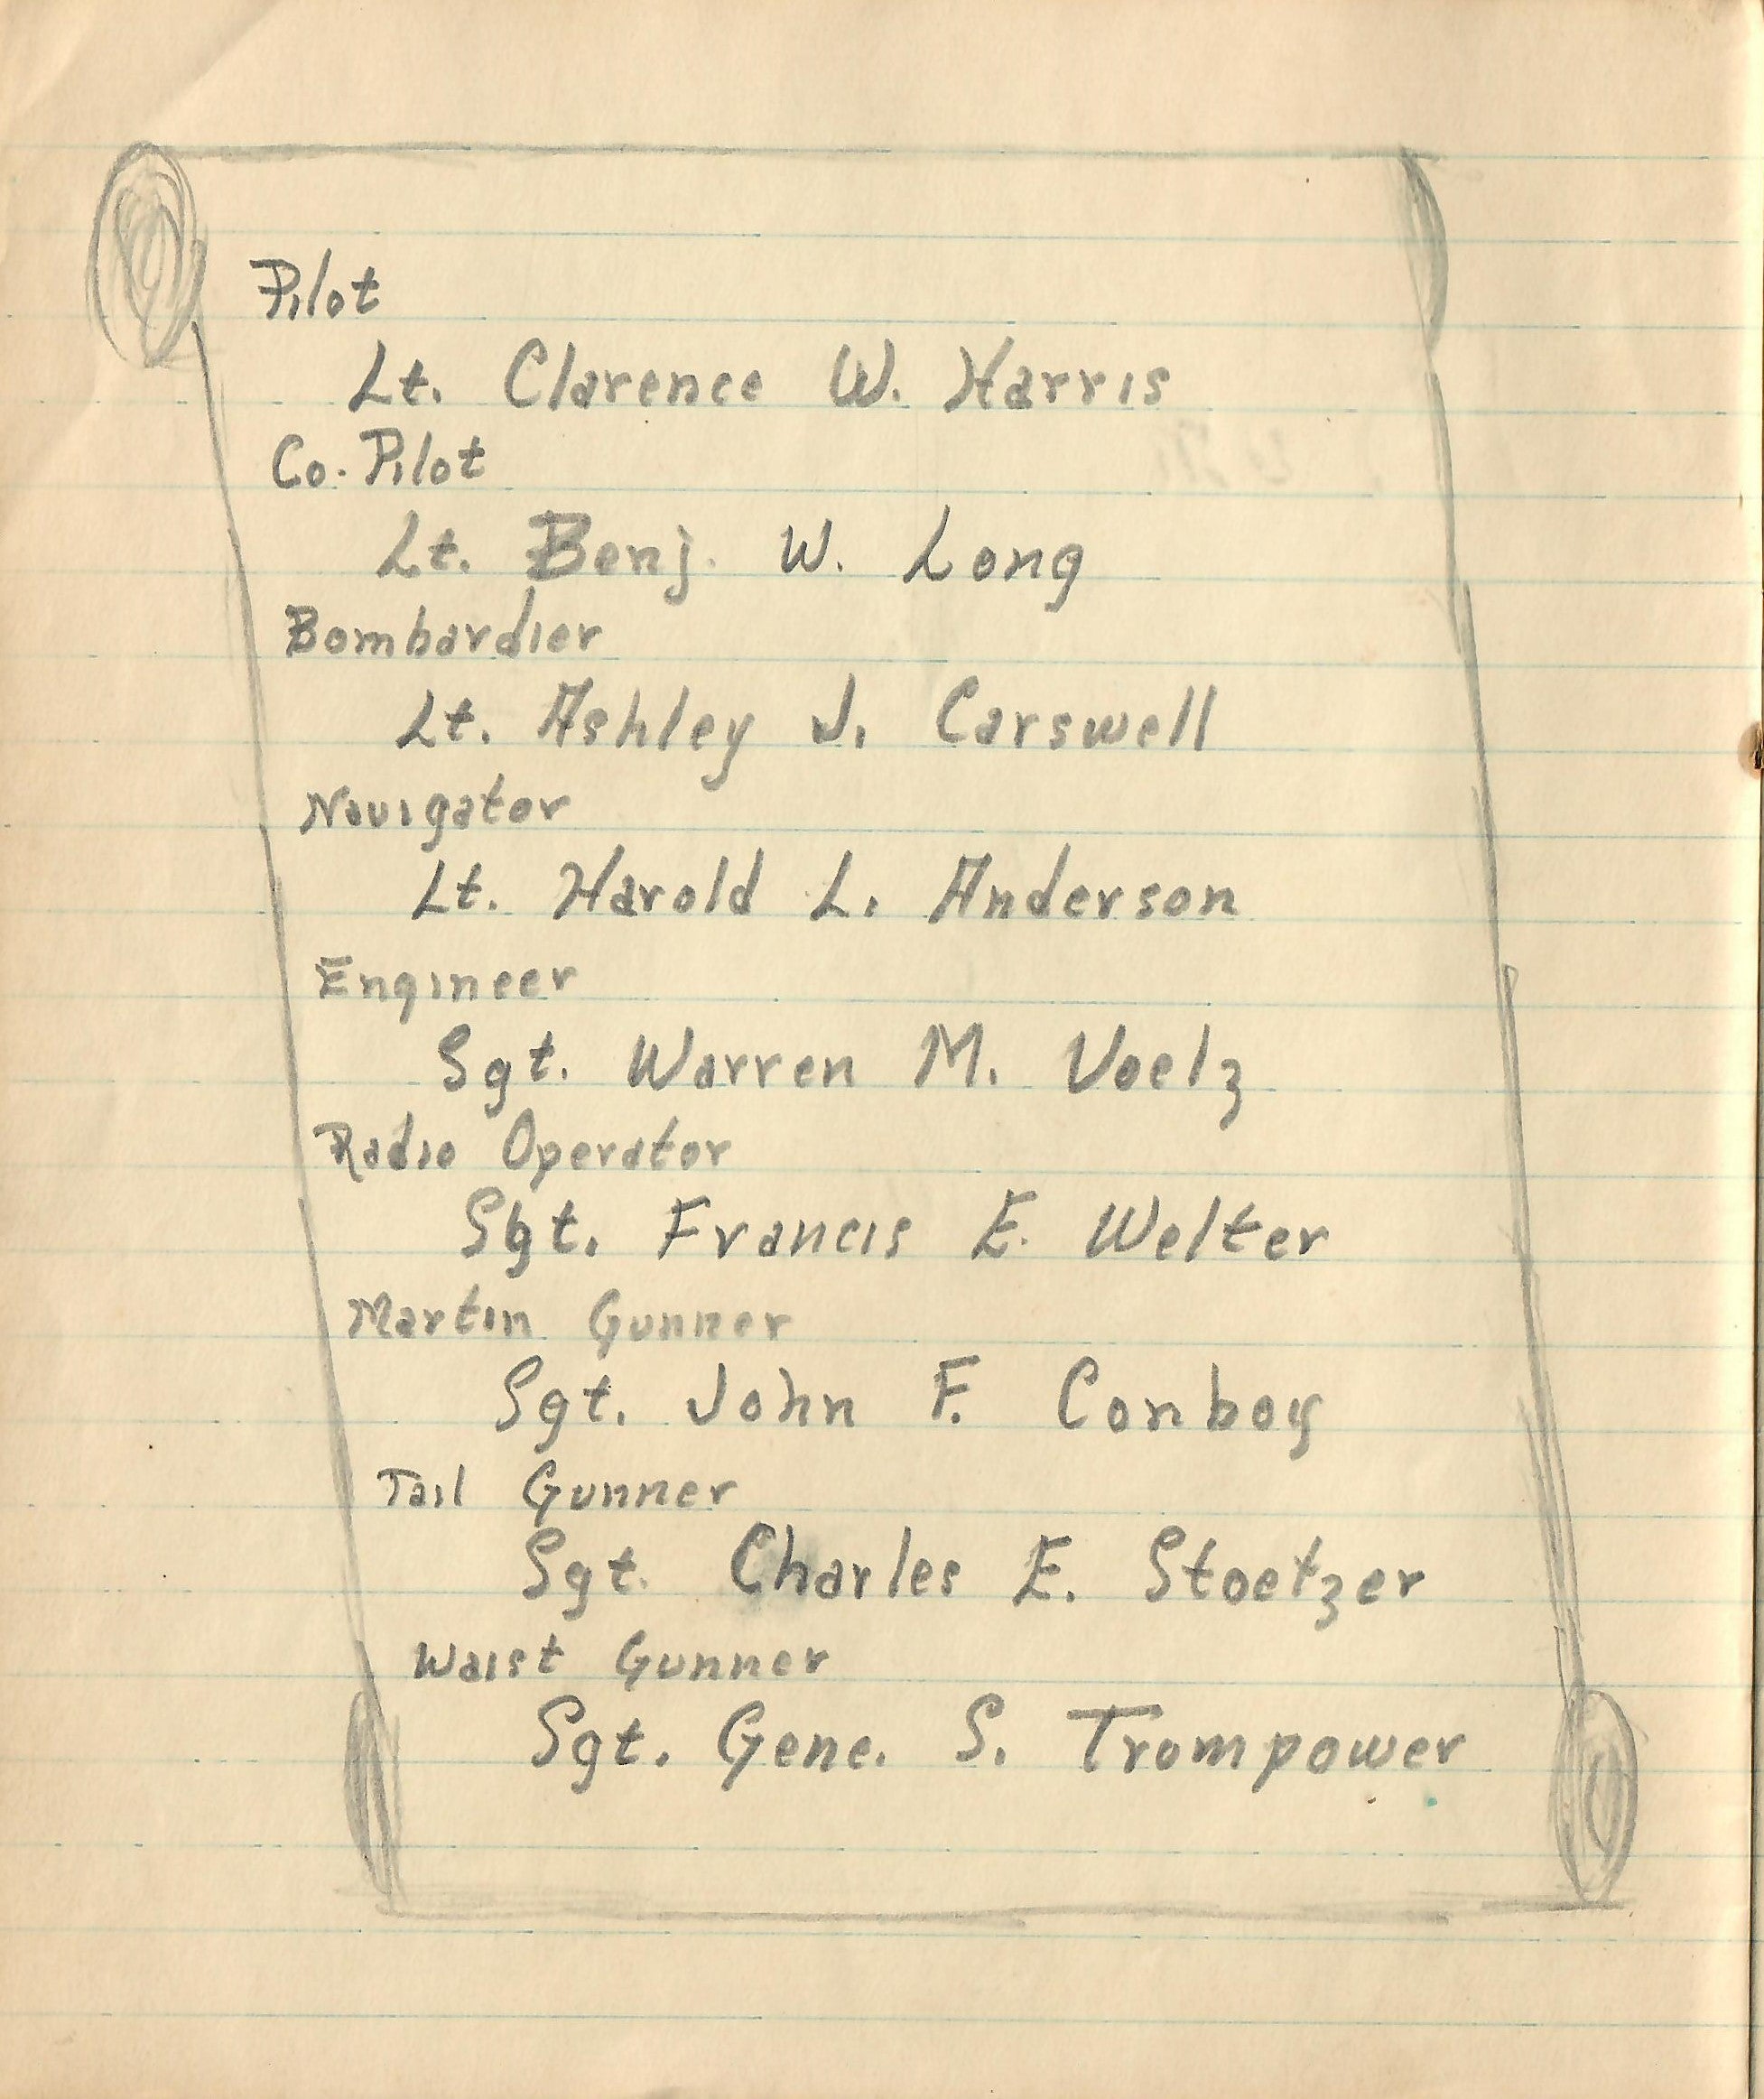 Pilot
Lt. Clarence W. Harris
Co. Pilot
Lt. Benj. W. Long
Bombardier
Lt. Ashley J. Carswell
Navigator
Lt. Harold L. Anderson
Engineer
Sgt. Warren M. Voelz
Radio Operator
Sgt. Francis E. Welter
Martin Gunner
Sgt. John F. Conboy
Tail Gunner
Sgt. Charles E. Stoetzer
Waist Gunner
Sgt. Gene. S. Trompower